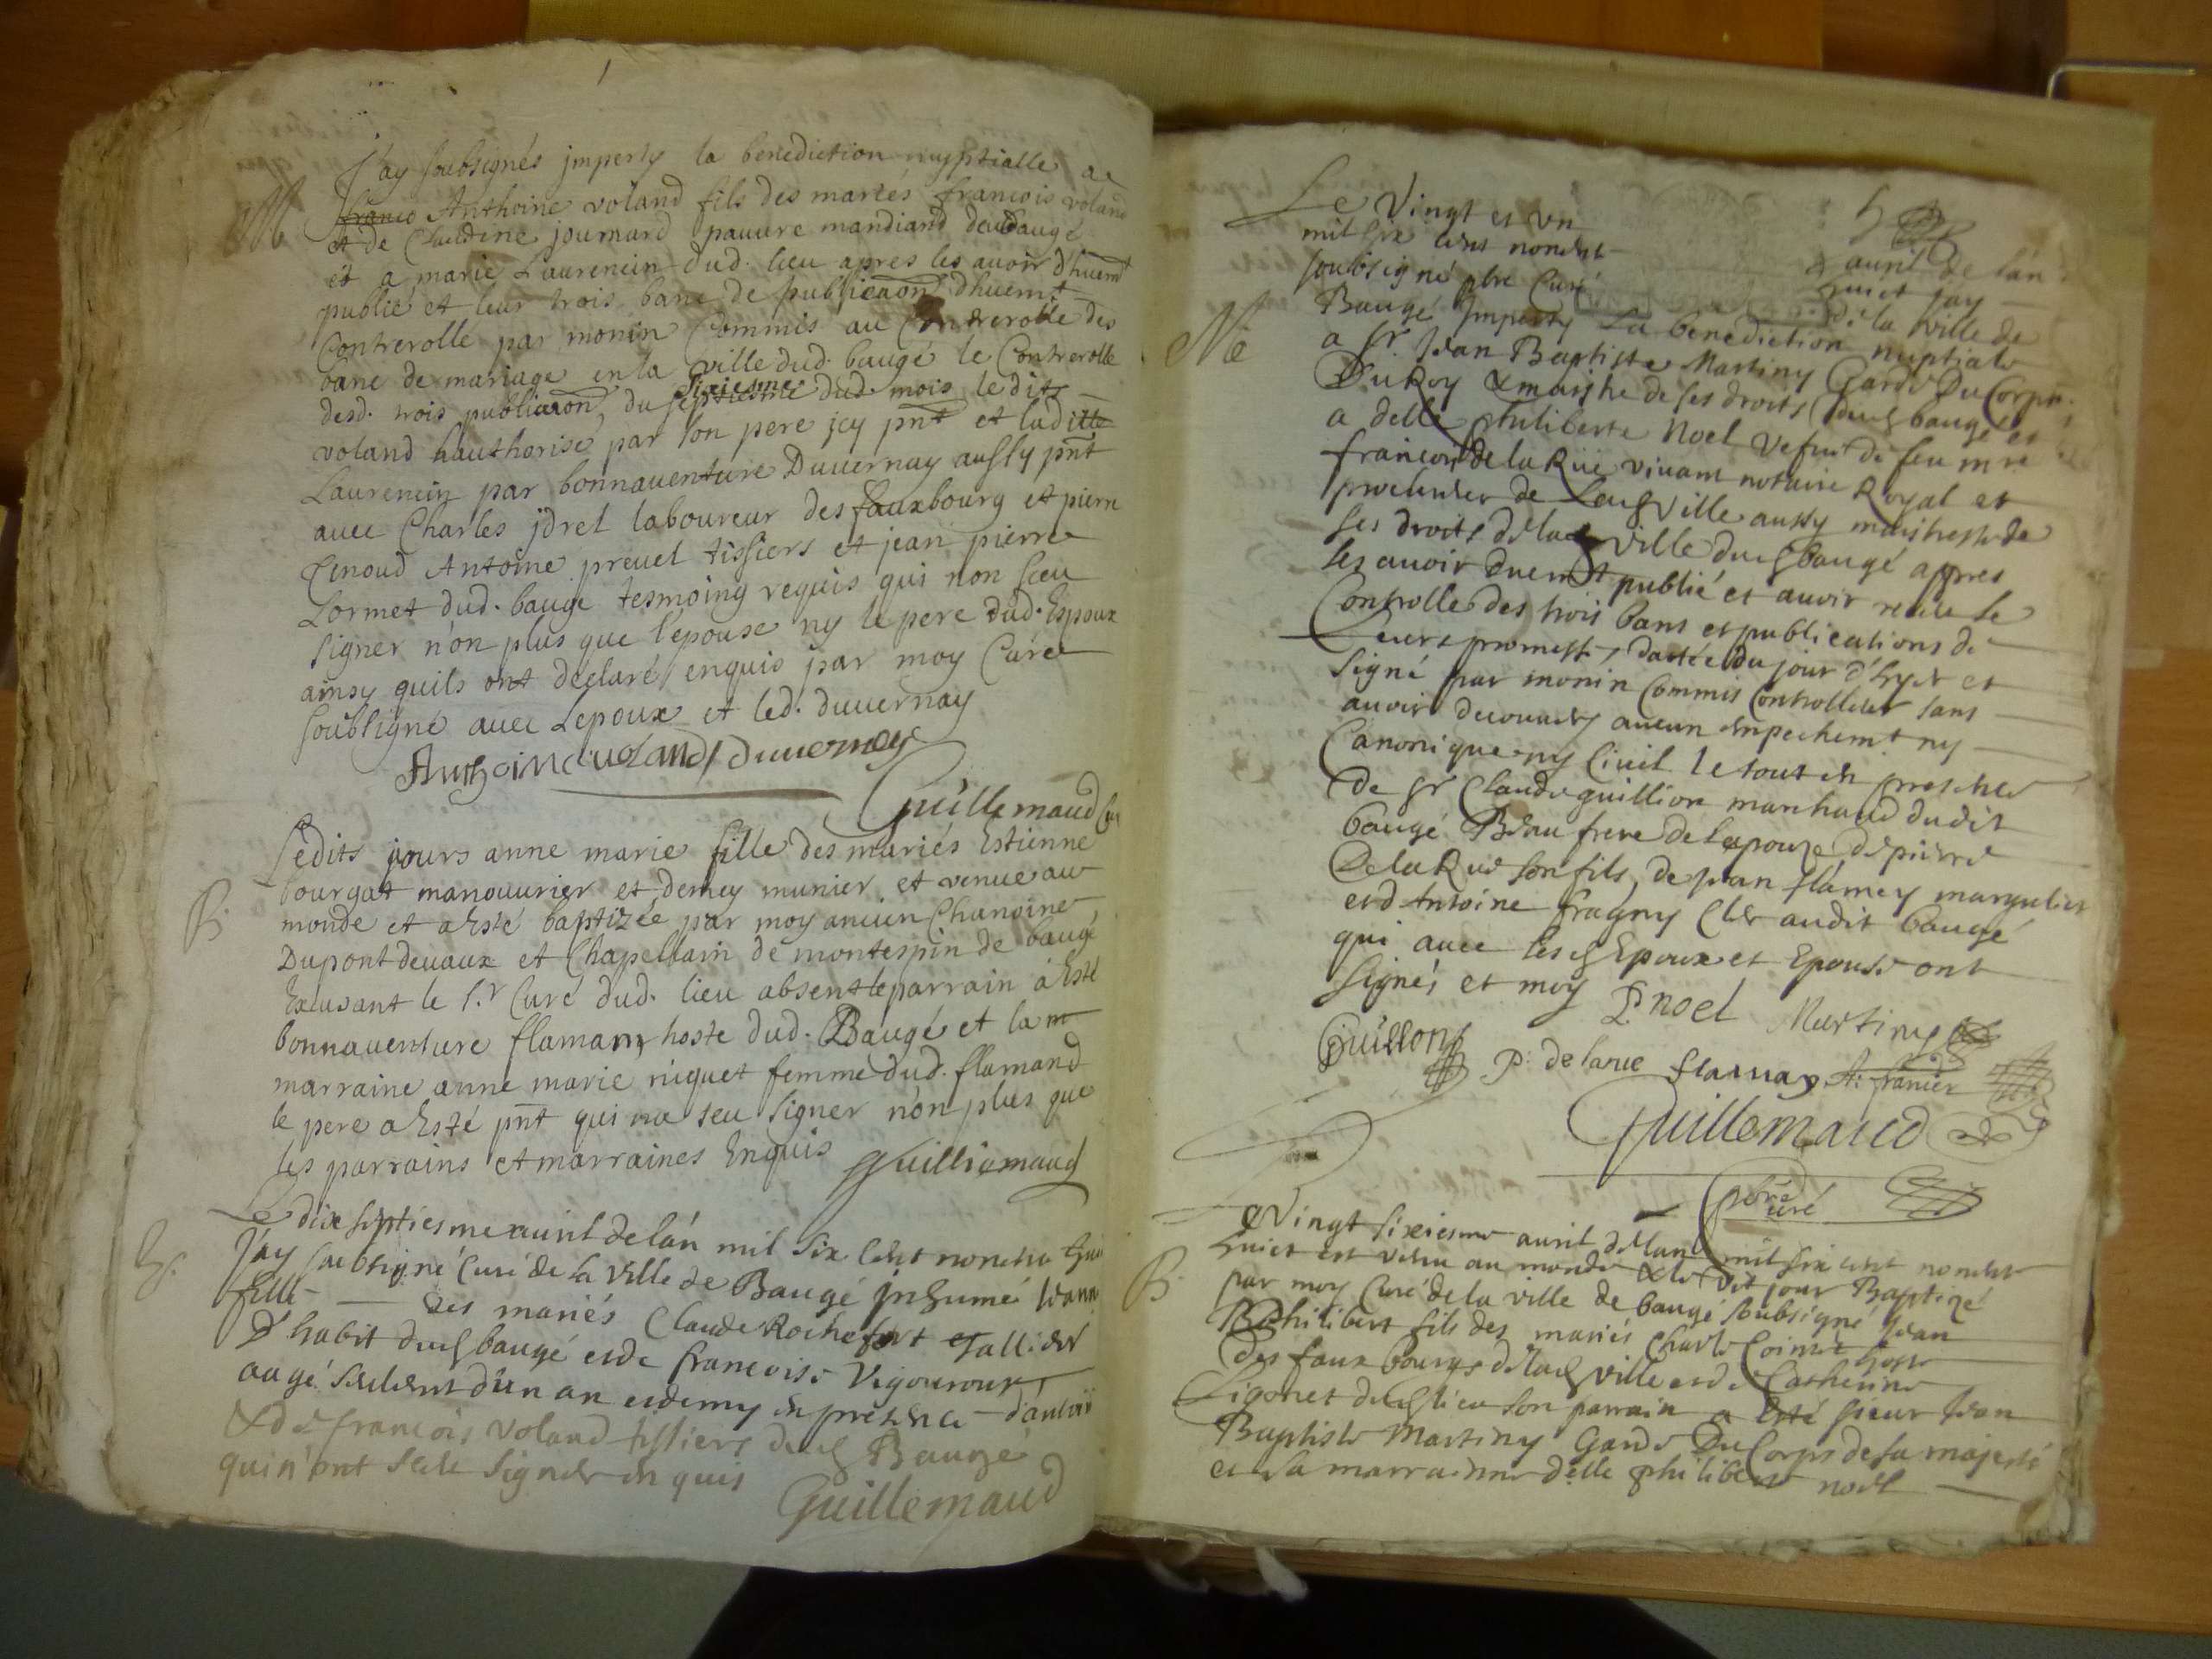 J'ay soubsignés jmperty la benediction nuptialle a
M franco Anthoine voland fils des mariés francois voland
et de Claudine joumard pauure mandiand dud baugé
et a marie Laurencin dud. lieu apres les auoir d'huemt
publié et leur trois banc de publicaon dhuemt
Contrerollé par monin Commis au Contrerolle des
banc de mariage en la ville dud. baugé le Contrerolle
desd. trois publicaon, du septiesme sixiesme dud. mois ledits
voland hauthorisé par son pere jcy pnt et laditte
Laurencin par bonnauenture Duuernay aussy pnt
auec Charles jdrel laboureur des fauxbourg et pierre
Antoine preuel tissiers et jean pierre
Lormet dud. baugé tesmoing requis qui non sceu
signer n'on plus que l'epouse ny le pere dud. Espoux
ainsy quils ont declaré enquis par moy Curé
soubsigné auec Lepoux et led. duuernay
Anthoine uoland duuernay
Guillemaud Cu
Ledits jours anne marie fille des mariés Estienne
bourgat manouurier et demey munier et venue au
B. monde et a Esté baptizée par moy ancien Chanoine
Dupont deuaux et Chapellain de montespin de baugé
Excusant le s.r Curé dud. lieu absent le parrain a Esté
bonnauenture flamam hoste dud. Baugé et la m
marraine anne marie niquet femme dud. flamand
le pere a Esté pnt qui na seu signer n'on plus que
les parrains et marraines Enquis Guilliemaud
Le dix septiesme auril de lán mil six cent nonente huict
J'ay soubsigné Curé de la ville de Baugé jnhumé
fille des mariés Claude Rochefort
D habit dud baugé et de francoise Vigouroux
aagé seulement d'un an et demy en presence d'antoi
& de francois Voland tissiers dud Baugé
qui n'ont sceu signer en quis
Guillemaud
5
Le Vingt et un auril de lán
mil six cens nonente huict jay
soubsigné pbre Curé de la ville de
Baugé Jmperty La benediction nuptiale
a sr. Jean Baptiste Martiny Garde Du Corps
Du Roy & maistre de ses droits dud baugé et
a delle philiberte Noel vefue de feu mre
francois de la Rue viuant notaire Royal et
procureur de lad ville aussy maistresse de
ses droits de lad ville dud baugé appres
les auoir duemt publié et auoir le
Controlle des trois bans et publications de
Leurs promesses, dattée du jour d'hyer et
signé par monin Commis Controlleur sans
auoir decouuert aucun empechemt ny
Canonique ny Ciuil le tout en presence
de sr Claude guillion marchand dudit
baugé Beau frere de lepouze de pierre
De la Rue son fils, de jean flamey marguliet
et d Antoine fragny Cler audit baugé
qui auec lesd Epoux et Epouse ont
signés et moy P noel Martiny
Guillon P. de larue flamay A. franier
Guillemaud
pbre Curé
Vingt sixiesme auril de lan mil six cent nonente
huict est venu au monde & le dit jour Baptizé
B. par moy Curé de la ville de baugé soubsigné Jean
Philibert fils des mariés Charle hoste
des faux bourgs de lad ville et de Catherine
Ligonet dud lieu son parrain a esté sieur Jean
Baptiste Martiny Garde Du Corps de sa majesté
et sa marraine delle philiberte noel